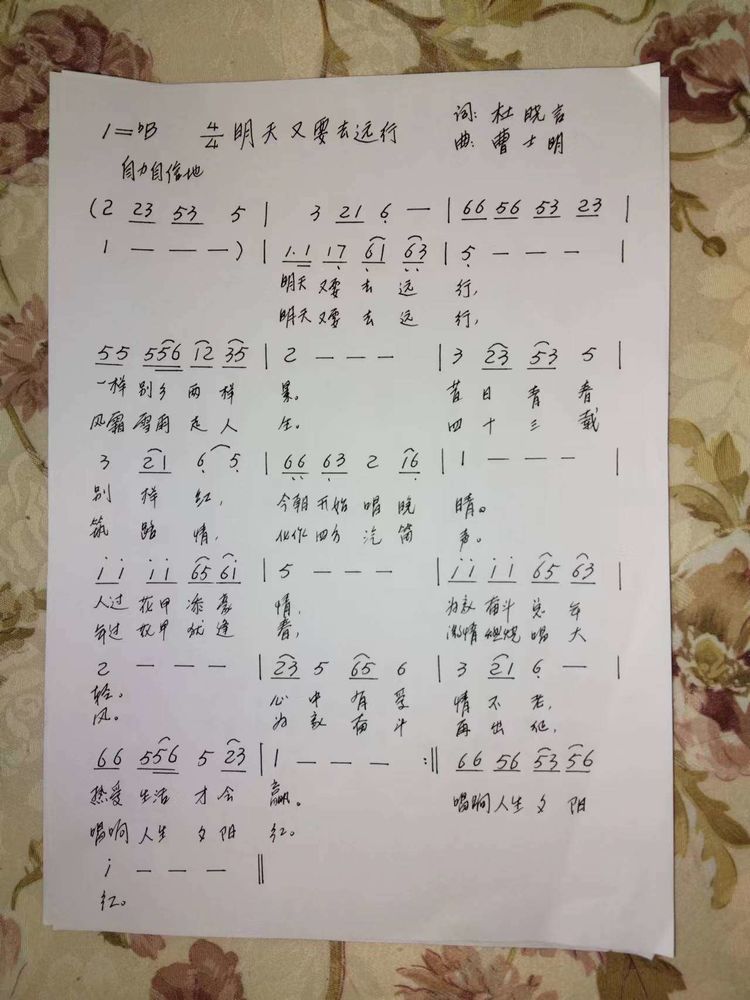 1=♭B 4/4 明天又要去远行 词: 杜晓言
曲: 曹士明
自力自信地
(2 23 53 5 | 3 21 6 — | 66 56 53 23 |
1 — — —) | 1.1 17 61 63 | 5 — — — |
明天又要去远 行,
明天又要去远 行,
55 556 12 35 | 2 — — — | 3 23 53 5
一样别乡两样 果。 昔日青春
风霜雪雨走人 生。 四十三载
3 21 6 5 | 66 63 2 16 | 1 — — —
别样红, 今朝开始唱晚 晴。
筑路情, 化作四方汽笛 声。
i i i i 65 6i | 5 — — — | i i i i 65 63 |
人过花甲添豪 情, 为教奋斗总年
年过 甲犹逢 春, 激情燃烧唱大
2 — — — | 23 5 65 6 | 3 21 6 — |
轻。 心中有爱 情不老,
风。 为教奋斗 再出征,
66 556 5 23 | 1 — — — :‖ 66 56 53 56
热爱生活才会 赢。 唱响人生夕阳
唱响人生夕阳 红。
i — — — ‖
红。